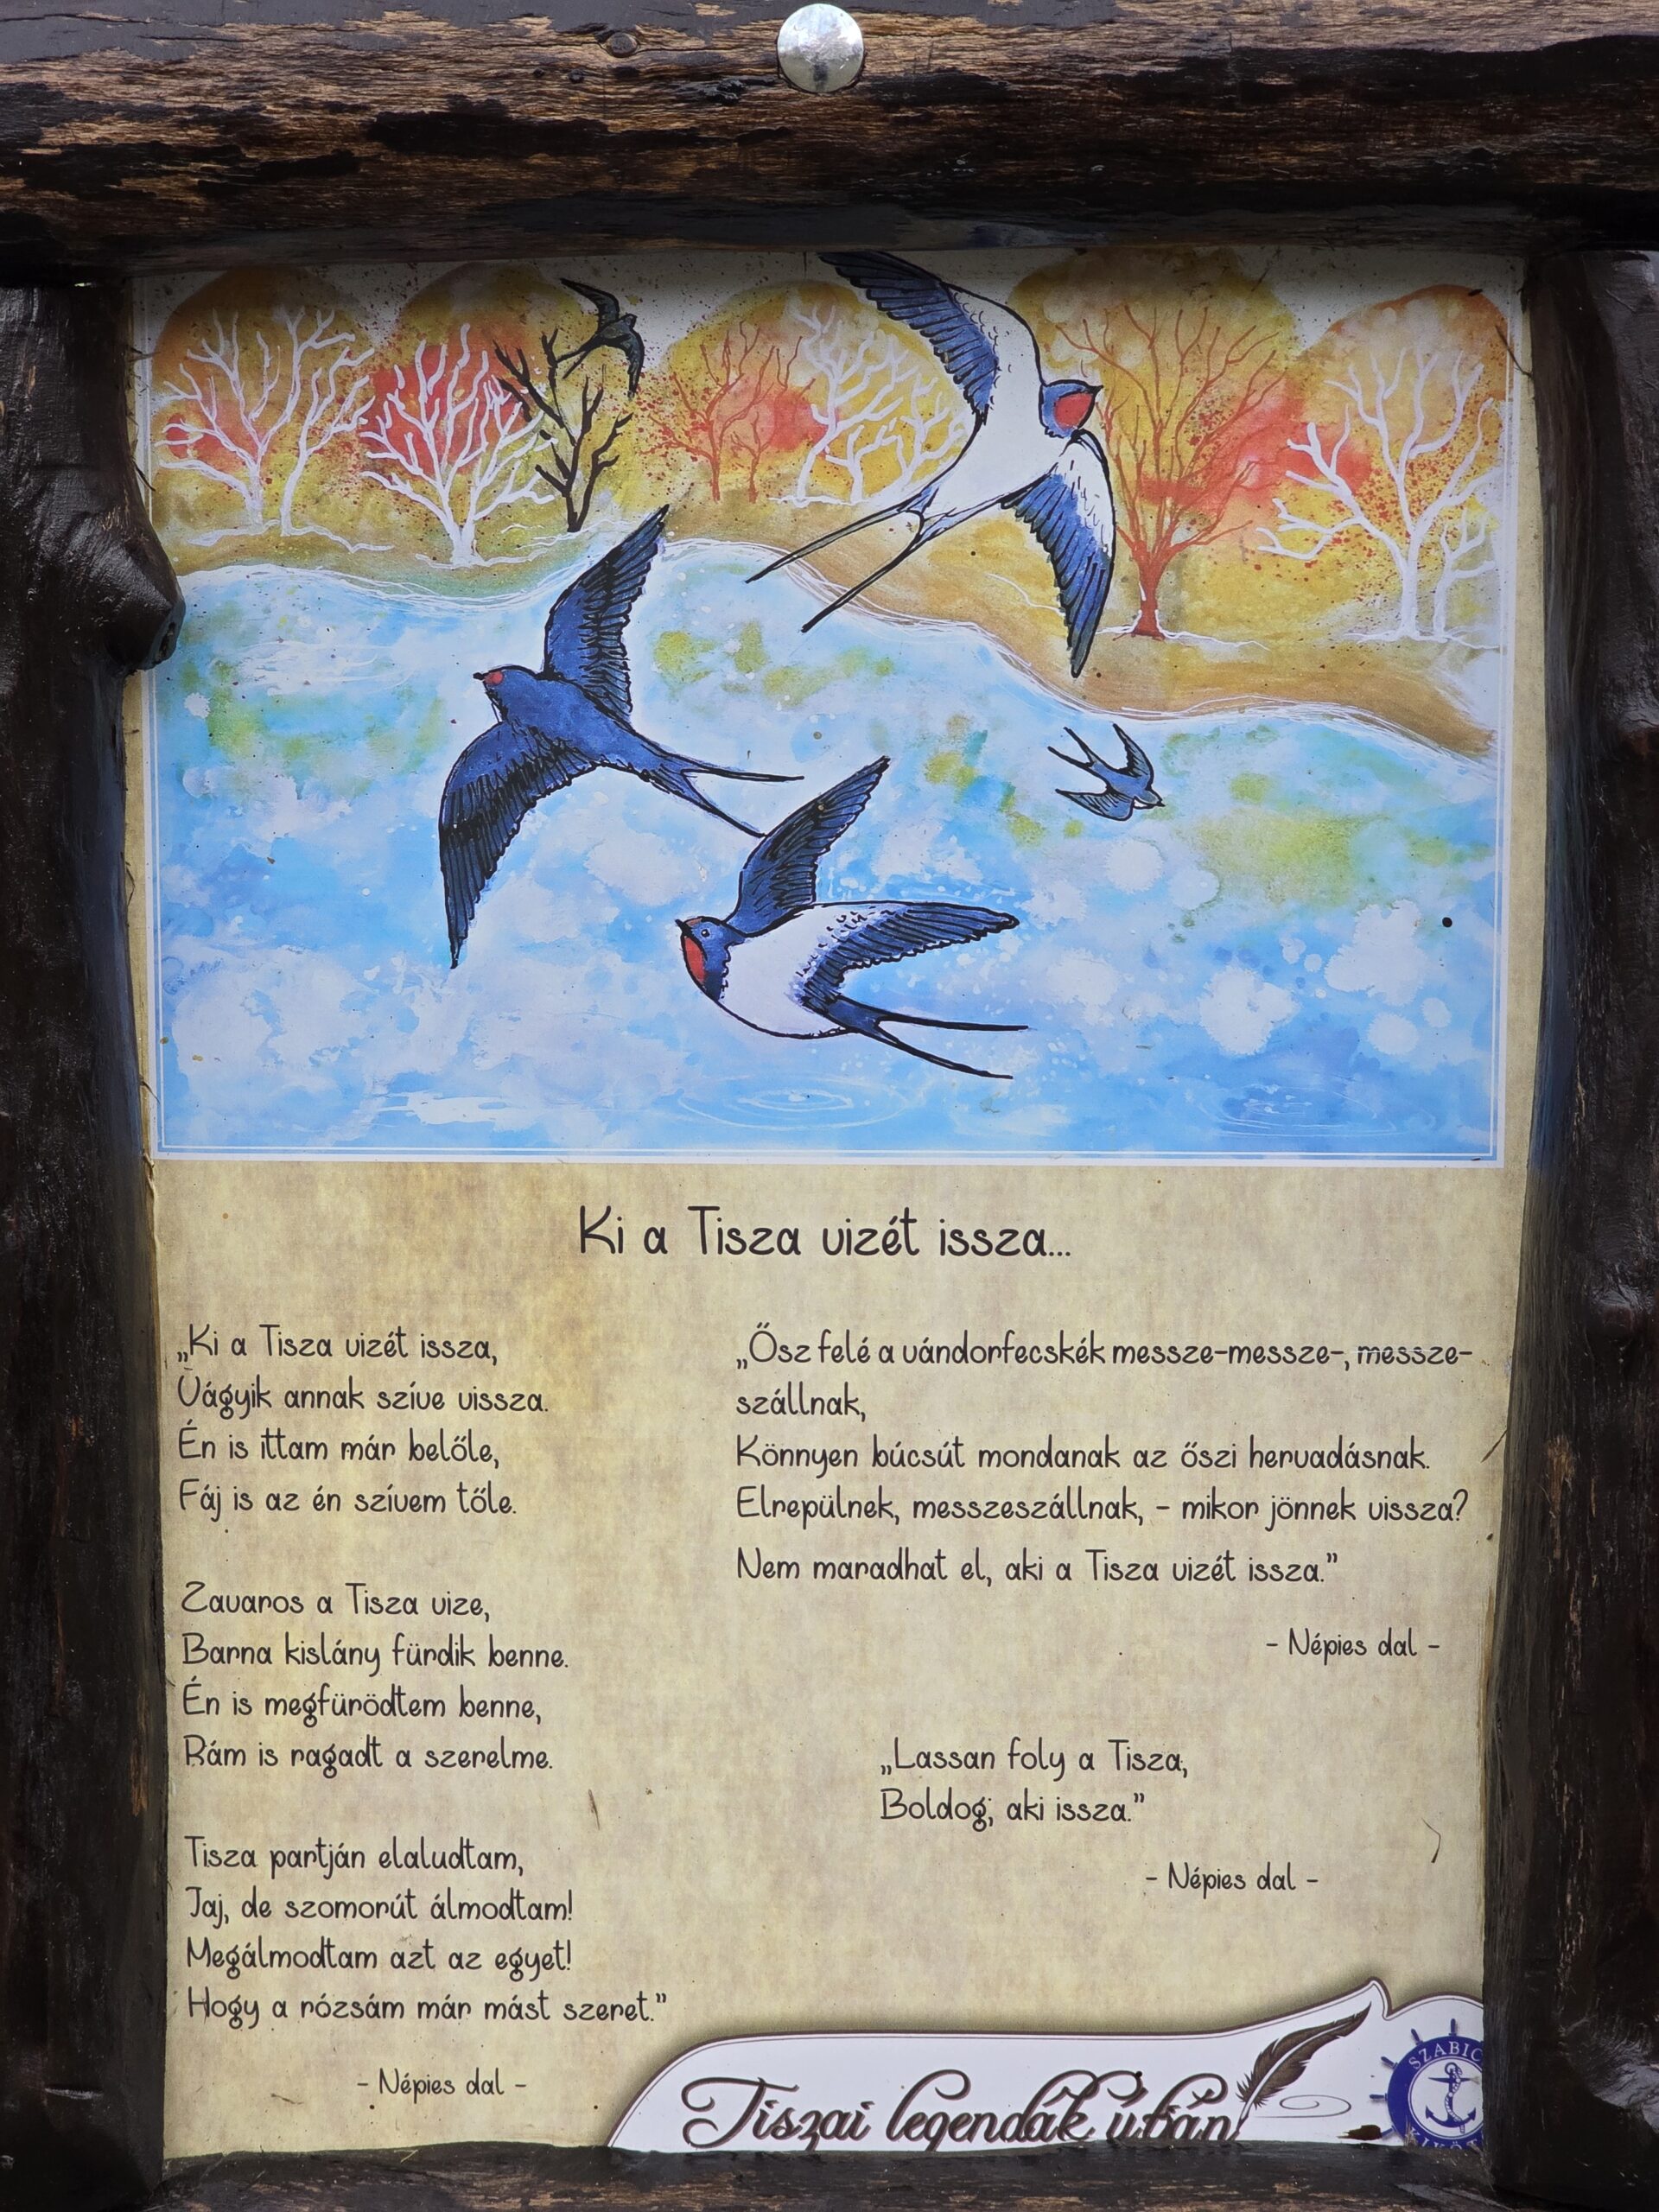 Ki a Tisza vizét issza...
„Ki a Tisza vizét issza,
Vágyik annak szíve vissza.
Én is ittam már belőle,
Fáj is az én szívem tőle.
Zavaros a Tisza vize,
Barna kislány fürdik benne.
Én is megfürödtem benne,
Rám is ragadt a szerelme.
Tisza partján elaludtam,
Jaj, de szomorút álmodtam!
Megálmodtam azt az egyet!
Hogy a rózsám már mást szeret.”
- Népies dal -
„Ősz felé a vándorfecskék messze-messze-, messze-
szállnak,
Könnyen búcsút mondanak az őszi hervadásnak.
Elrepülnek, messzeszállnak, - mikor jönnek vissza?
Nem maradhat el, aki a Tisza vizét issza.”
- Népies dal -
„Lassan foly a Tisza,
Boldog, aki issza.”
- Népies dal -
Tiszai legendák útján